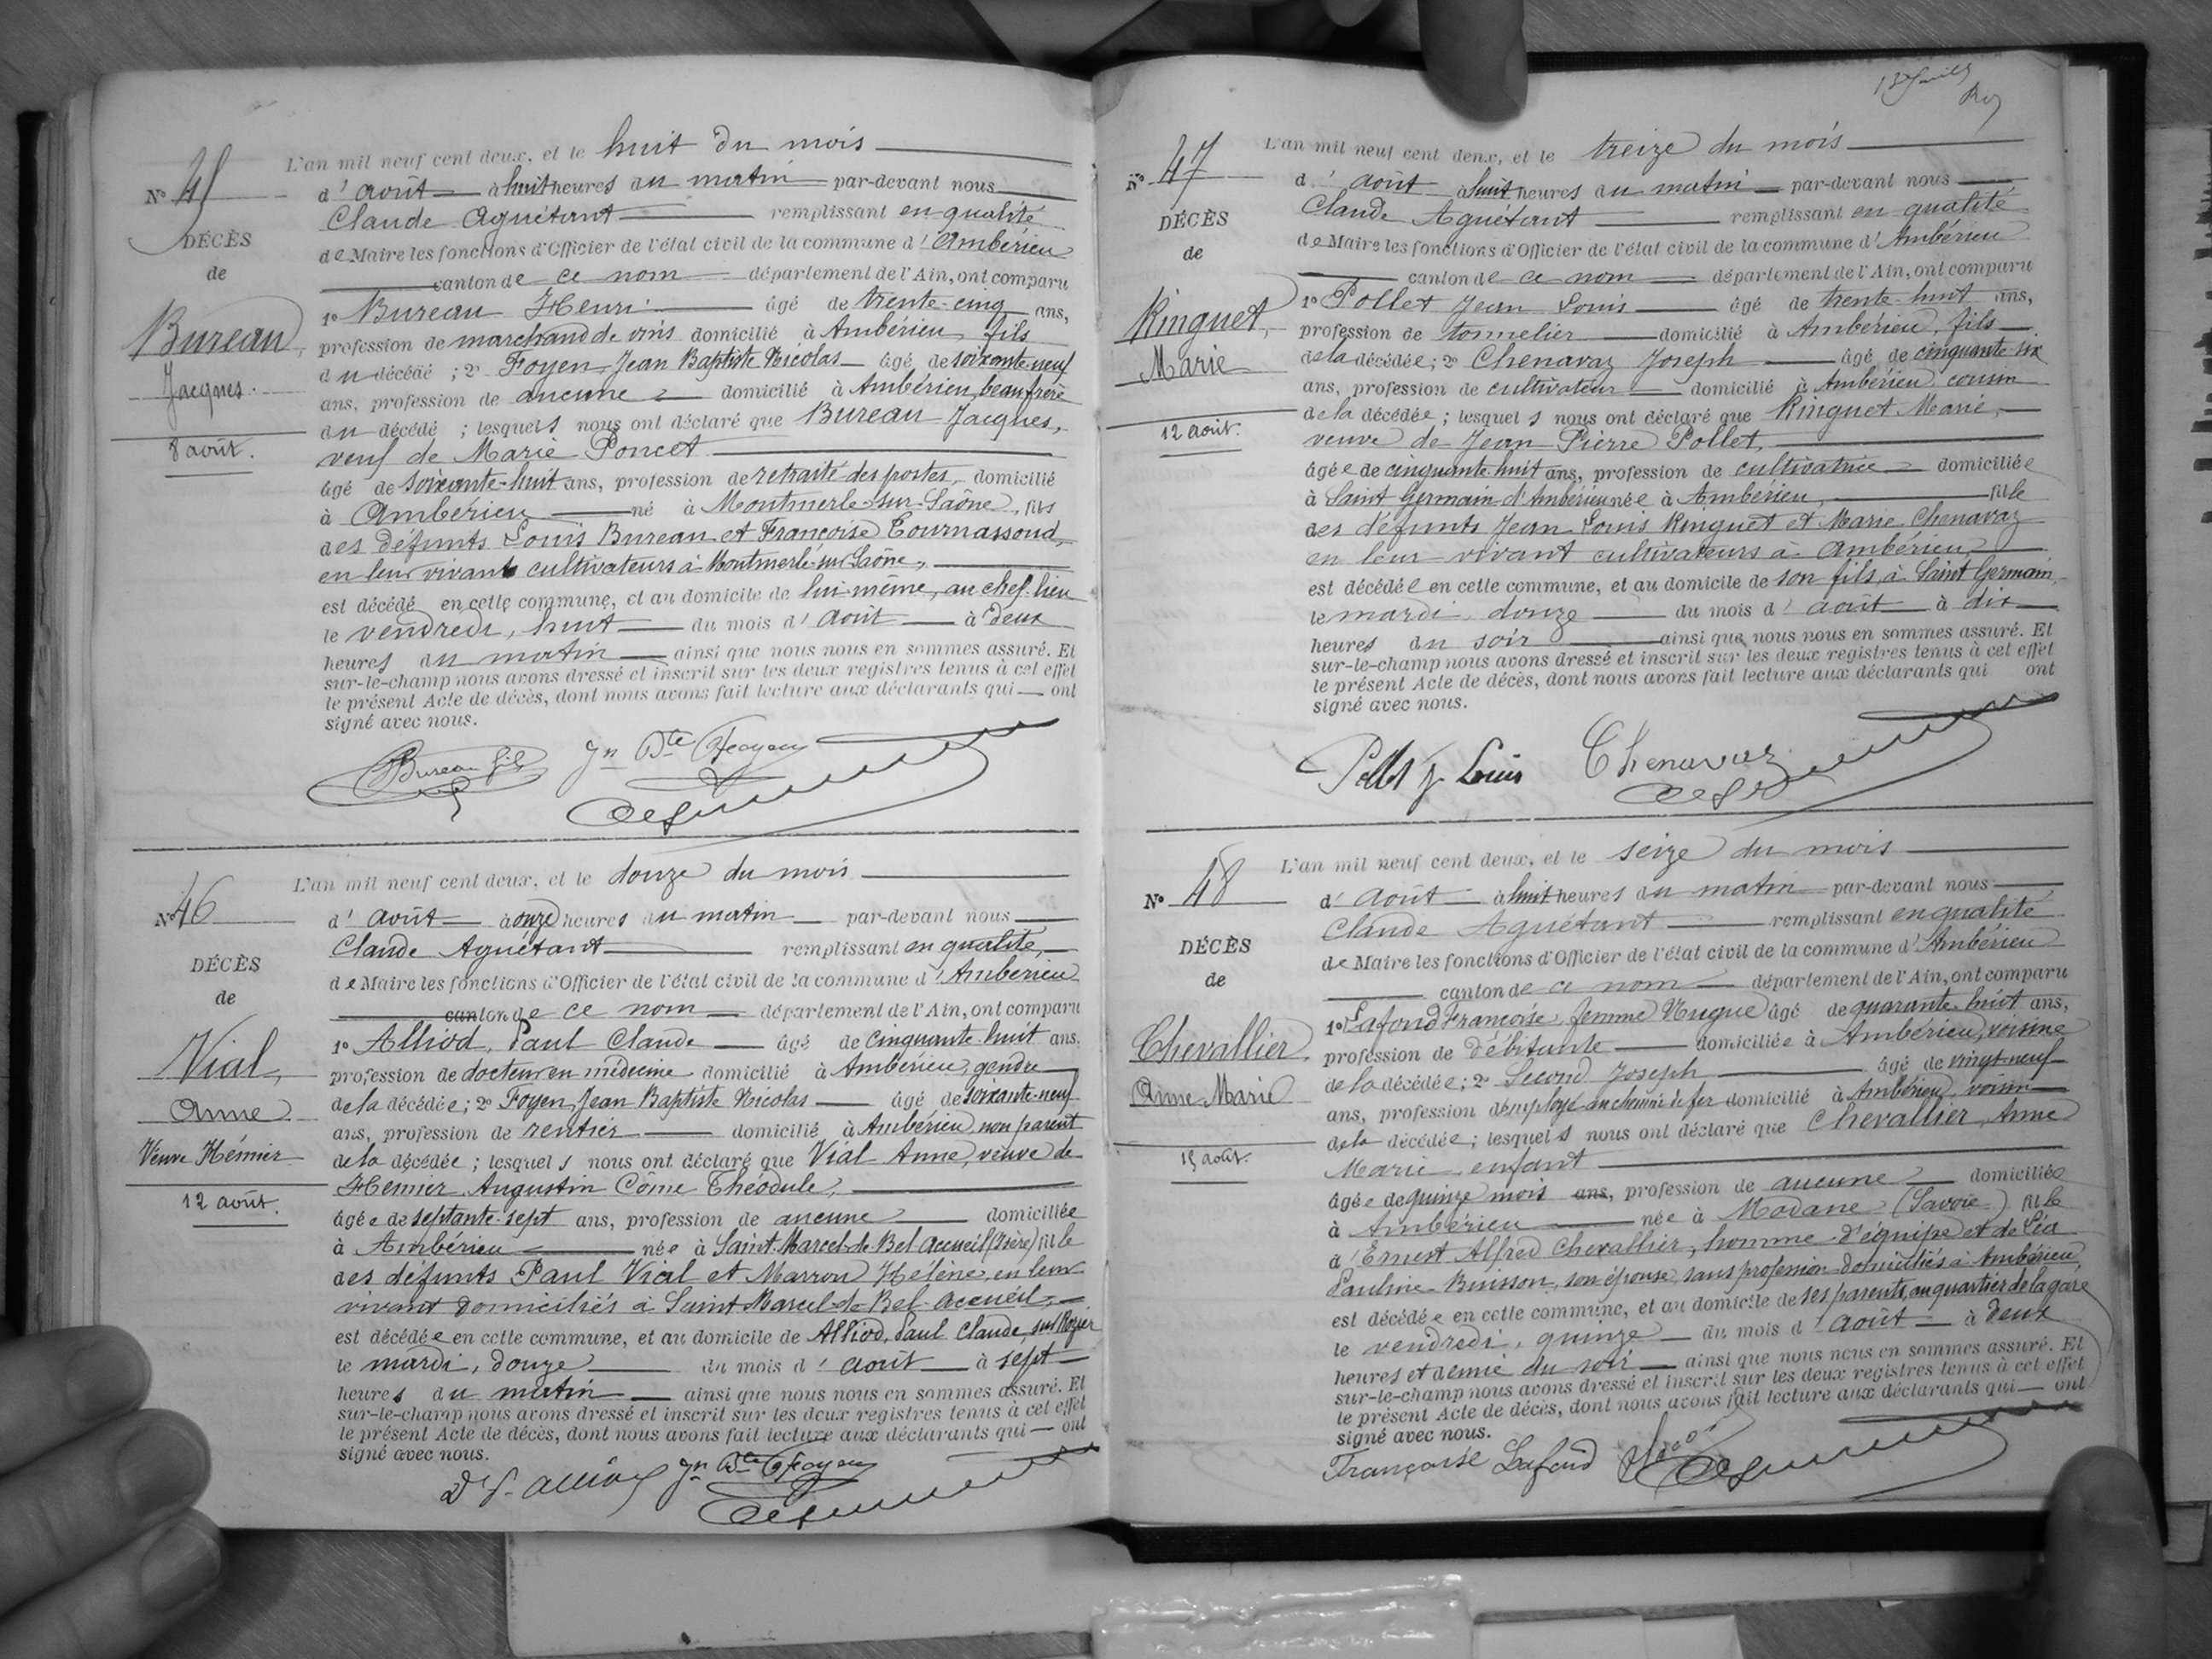 N° 45
DÉCÈS
de
Bureau,
Jacques.
8 août.
L'an mil neuf cent deux, et le huit du mois
d'août à huit heures du matin par-devant nous
Claude Aguétant remplissant en qualité
de Maire les fonctions d'Officier de l'état civil de la commune d'Ambérieu
canton de ce nom département de l'Ain, ont comparu
1° Bureau Henri âgé de trente-cinq ans,
profession de marchand de vins domicilié à Ambérieu, fils
du décédé ; 2° Foyen Jean Baptiste Nicolas âgé de soixante-neuf
ans, profession de aucune domicilié à Ambérieu, beau frère
du décédé ; lesquels nous ont déclaré que Bureau Jacques,
veuf de Marie Poncet
âgé de soixante-huit ans, profession de retraité des postes, domicilié
à Ambérieu né à Montmerle-sur-Saône, fils
des défunts Louis Bureau et Françoise Tournassoud,
en leur vivant cultivateurs à Montmerle-sur-Saône,
est décédé en cette commune, et au domicile de lui-même, au chef-lieu
le vendredi, huit du mois d'août à deux
heures du matin ainsi que nous nous en sommes assuré. Et
sur-le-champ nous avons dressé et inscrit sur les deux registres tenus à cet effet
le présent Acte de décès, dont nous avons fait lecture aux déclarants qui ont
signé avec nous.
Bureau fils Jn Bte Foyen
N° 46
DÉCÈS
de
Vial,
Anne
Veuve Hémier
12 août.
L'an mil neuf cent deux, et le douze du mois
d'août à onze heures du matin par-devant nous
Claude Aguétant remplissant en qualité,
de Maire les fonctions d'Officier de l'état civil de la commune d'Ambérieu
canton de ce nom département de l'Ain, ont comparu
1° Alliod, Paul Claude âgé de cinquante-huit ans,
profession de docteur en médecine domicilié à Ambérieu, gendre
de la décédée ; 2° Foyen, Jean Baptiste Nicolas âgé de soixante-neuf
ans, profession de rentier domicilié à Ambérieu, non parent
de la décédée ; lesquels nous ont déclaré que Vial Anne, veuve de
Hémier Augustin Côme Théodule,
âgée de septante-sept ans, profession de aucune domiciliée
à Ambérieu née à Saint-Marcel-de-Bel-Accueil (Isère) fille
des défunts Paul Vial et Marron Hélène, en leur
vivant domiciliés à Saint-Marcel-de-Bel-Accueil,
est décédée en cette commune, et au domicile de Alliod, Paul Claude,
le mardi, douze du mois d'août à sept
heures du matin ainsi que nous nous en sommes assuré. Et
sur-le-champ nous avons dressé et inscrit sur les deux registres tenus à cet effet
le présent Acte de décès, dont nous avons fait lecture aux déclarants qui ont
signé avec nous.
Dr P. Alliod Jn Bte Foyen
N° 47
DÉCÈS
de
Ringuet,
Marie
12 août.
L'an mil neuf cent deux, et le treize du mois
d'août à huit heures du matin par-devant nous
Claude Aguétant remplissant en qualité
de Maire les fonctions d'Officier de l'état civil de la commune d'Ambérieu
canton de ce nom département de l'Ain, ont comparu
1° Pollet Jean Louis âgé de trente-huit ans,
profession de tonnelier domicilié à Ambérieu, fils
de la décédée ; 2° Chenavaz Joseph âgé de cinquante-six
ans, profession de cultivateur domicilié à Ambérieu, cousin
de la décédée ; lesquels nous ont déclaré que Ringuet Marie,
veuve de Jean Pierre Pollet,
âgée de cinquante-huit ans, profession de cultivatrice domiciliée
à Saint Germain d'Ambérieu née à Ambérieu, fille
des défunts Jean Louis Ringuet et Marie Chenavaz
en leur vivant cultivateurs à Ambérieu,
est décédée en cette commune, et au domicile de son fils, à Saint Germain,
le mardi, douze du mois d'août à dix
heures du soir ainsi que nous nous en sommes assuré. Et
sur-le-champ nous avons dressé et inscrit sur les deux registres tenus à cet effet
le présent Acte de décès, dont nous avons fait lecture aux déclarants qui ont
signé avec nous.
Pollet J. Louis Chenavaz
N° 48
DÉCÈS
de
Chevallier,
Anne Marie
15 août.
L'an mil neuf cent deux, et le seize du mois
d'août à huit heures du matin par-devant nous
Claude Aguétant remplissant en qualité
de Maire les fonctions d'Officier de l'état civil de la commune d'Ambérieu
canton de ce nom département de l'Ain, ont comparu
1° Lafond Françoise, femme Nugue âgé de quarante-huit ans,
profession de débitante domiciliée à Ambérieu, voisine
de la décédée ; 2° Second Joseph âgé de vingt-neuf
ans, profession d'employé au chemin de fer domicilié à Ambérieu, voisin
de la décédée ; lesquels nous ont déclaré que Chevallier, Anne
Marie enfant
âgée de quinze mois ans, profession de aucune domiciliée
à Ambérieu née à Modane (Savoie) fille
d'Ernest Alfred Chevallier, homme d'équipe et de Léa
Pauline Buisson, son épouse, sans profession domiciliés à Ambérieu,
est décédée en cette commune, et au domicile de ses parents, au quartier de la gare
le vendredi, quinze du mois d'août à deux
heures et demie du soir ainsi que nous nous en sommes assuré. Et
sur-le-champ nous avons dressé et inscrit sur les deux registres tenus à cet effet
le présent Acte de décès, dont nous avons fait lecture aux déclarants qui ont
signé avec nous.
Françoise Lafond